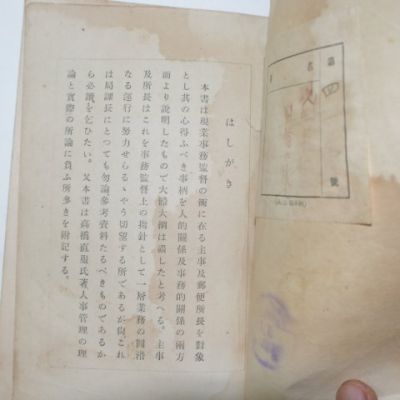 はしがき
本書は現業事務監督の衝に在る主事及郵便所長を對象
とし其の心得ふべき事柄を人的關係及事務的關係の兩方
面より說明したもので大體大綱は盡したと考へる。主事
及所長はこれを事務監督上の指針として一層業務の圓滑
なる運行に努力せらるゝやう切望する所であるが倘これ
は局課長にとつても勿論參考資料たるべきものであるか
ら必讀を乞ひたい。又本書は高橋直服氏著人事管理の理
論と實際の所論に負ふ所多きを附記する。
第
四
號
名